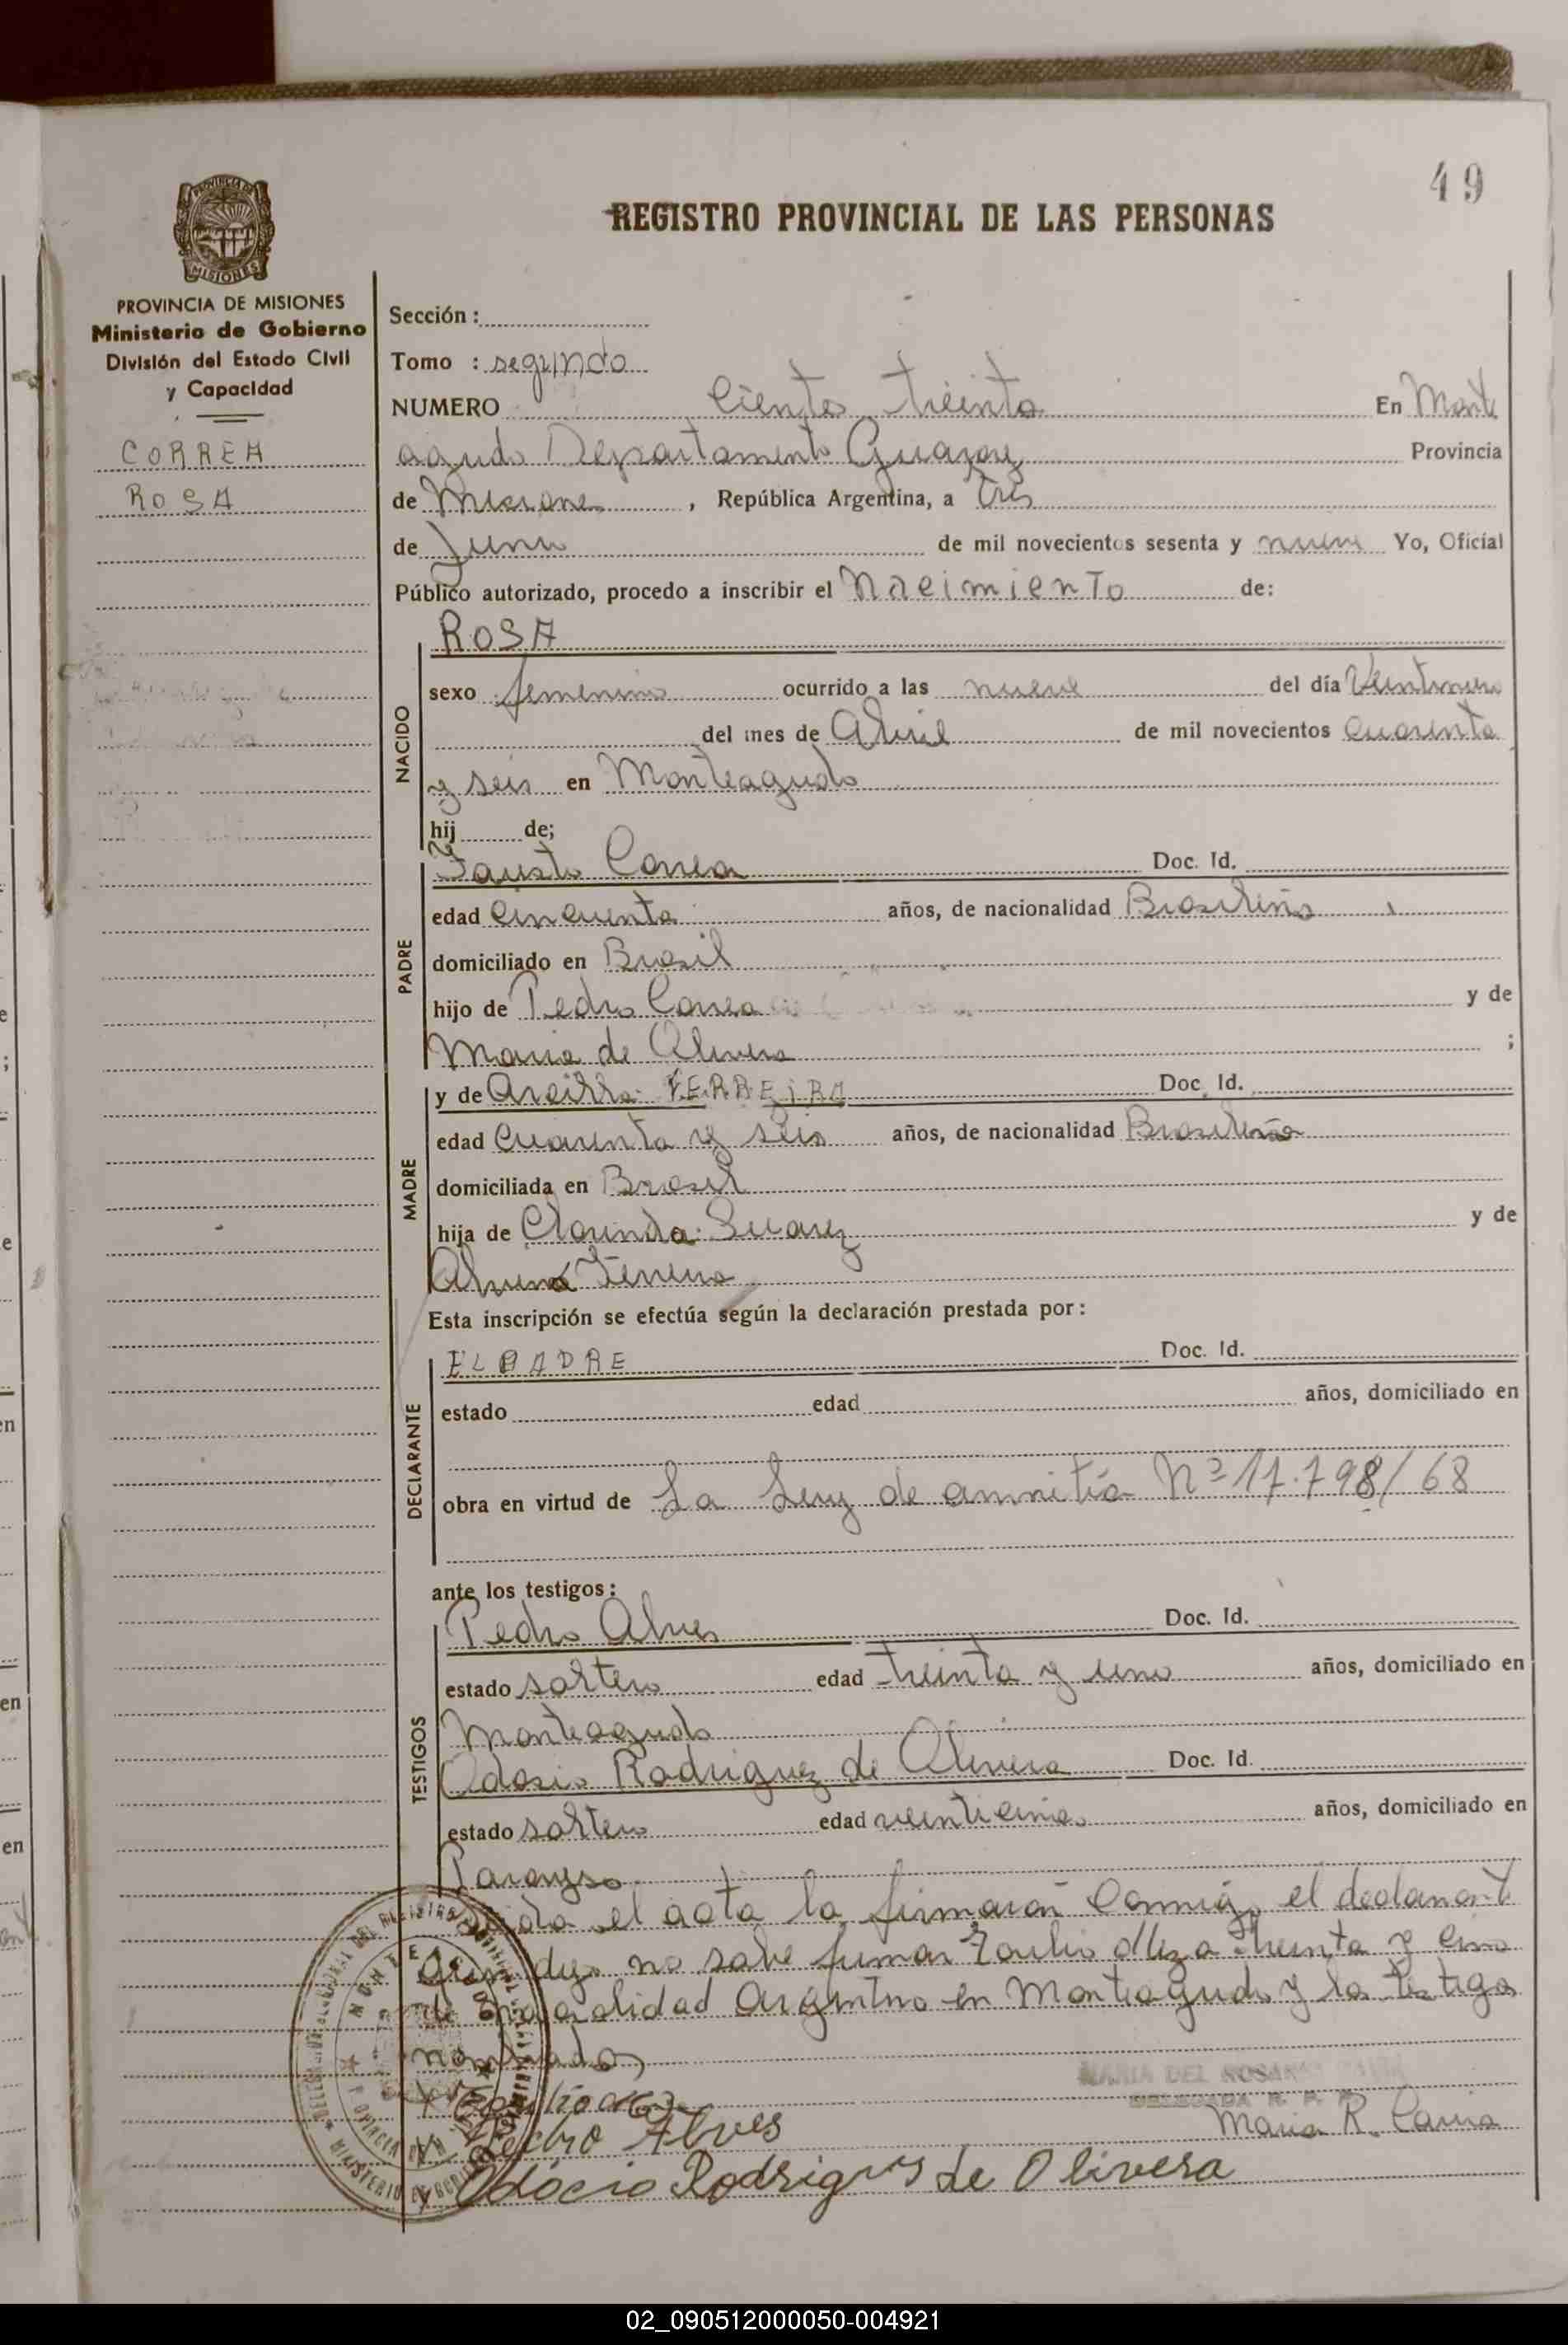 49
REGISTRO PROVINCIAL DE LAS PERSONAS
PROVINCIA DE
MISIONES
PROVINCIA DE MISIONES
Ministerio de Gobierno
División del Estado Civil
y Capacidad
CORREA
ROSA
Sección :
Tomo : segundo
NUMERO Ciento treinta En Monte
agudo Departamento Guarany Provincia
de Misiones , República Argentina, a tres
de Junio de mil novecientos sesenta y nueve Yo, Oficial
Público autorizado, procedo a inscribir el Nacimiento de:
NACIDO
ROSA
sexo femenino ocurrido a las nueve del día Veintinueve
del mes de Abril de mil novecientos cuarenta
y seis en Monteagudo
hij de;
PADRE
Fausto Correa Doc. Id.
edad cincuenta años, de nacionalidad Brasileña
domiciliado en Brasil
hijo de Pedro Correa y de
Maria de Olivera ;
MADRE
y de FERREIRA Doc. Id.
edad cuarenta y seis años, de nacionalidad Brasileña
domiciliada en Brasil
hija de Clarinda Suarez y de
Ferreira
Esta inscripción se efectúa según la declaración prestada por:
DECLARANTE
EL PADRE Doc. Id.
estado edad años, domiciliado en
obra en virtud de La Ley de amnitía Nº 17.798/68
ante los testigos:
TESTIGOS
Pedro Alves Doc. Id.
estado soltero edad treinta y uno años, domiciliado en
Monteagudo
Odosio Rodriguez de Olivera Doc. Id.
estado soltero edad veinticinco años, domiciliado en
Parayso
el acta la firmarán Conmigo el declarant
quien dijo no saber firmar treinta y cinco
de nacionalidad Argentino en Monteagudo y los testigos
nombrados
MARIA DEL ROSARIO
DELEGADA R. P. P.
Maria R.
Pedro Alves
Odócio Rodrigues de Olivera
02_090512000050-004921